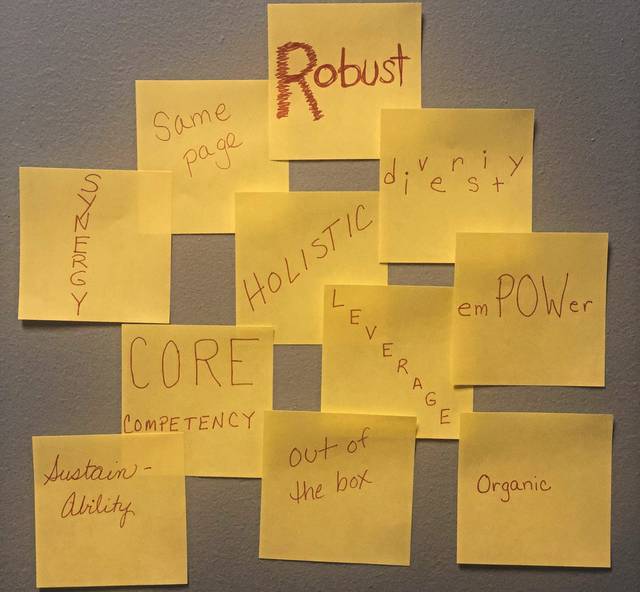 Robust
Same
page
diversity
SYNERGY
HOLISTIC
emPOWer
LEVERAGE
CORE
COMPETENCY
Sustain-
Ability
out of
the box
Organic